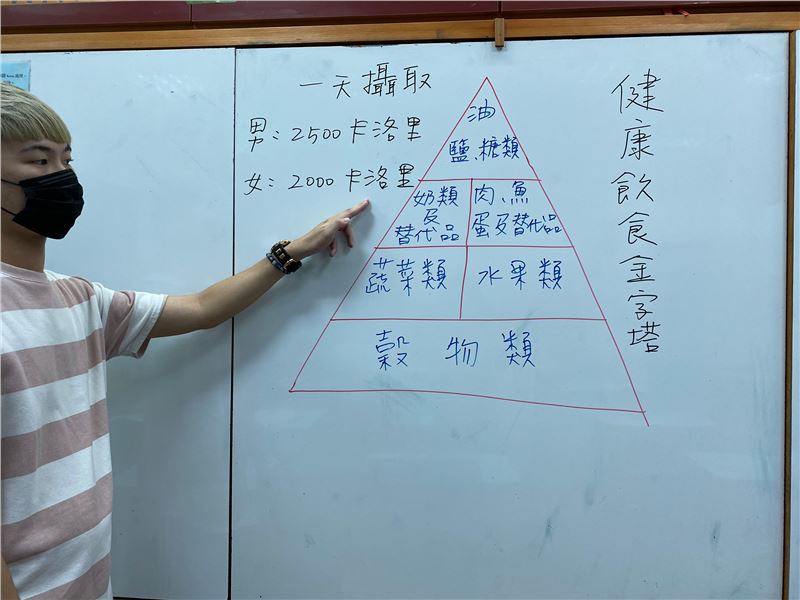 一天攝取
男：2500卡洛里
女：2000卡洛里
油
鹽、糖類
奶類
及
替代品
肉、魚
蛋及替代品
蔬菜類
水果類
穀物類
健康飲食金字塔